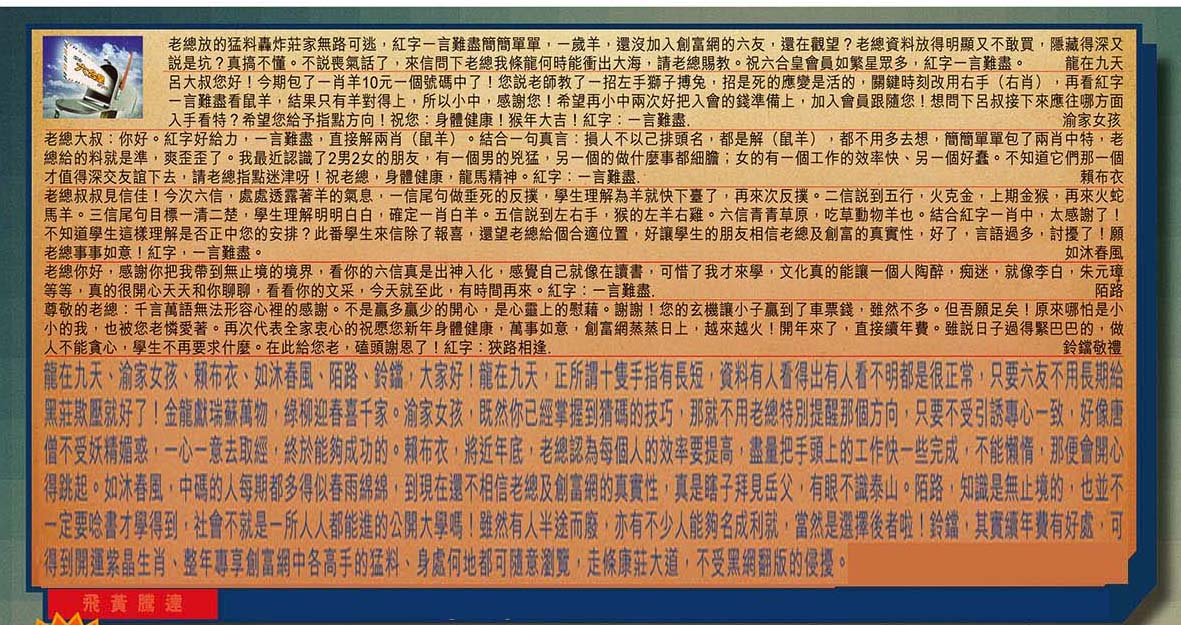 老總放的猛料轟炸莊家無路可逃，紅字一言難盡簡簡單單，一歲羊，還沒加入創富網的六友，還在觀望？老總資料放得明顯又不敢買，隱藏得深又
說是坑？真搞不懂。不說喪氣話了，來信問下老總我條龍何時能衝出大海，請老總賜教。祝六合皇會員如繁星眾多，紅字一言難盡。 龍在九天
呂大叔您好！今期包了一肖羊10元一個號碼中了！您説老師教了一招左手獅子搏兔，招是死的應變是活的，關鍵時刻改用右手（右肖），再看紅字
一言難盡看鼠羊，結果只有羊對得上，所以小中，感謝您！希望再小中兩次好把入會的錢準備上，加入會員跟隨您！想問下呂叔接下來應往哪方面
入手看特？希望您給予指點方向！祝您：身體健康！猴年大吉！紅字：一言難盡. 渝家女孩
老總大叔：你好。紅字好給力，一言難盡，直接解兩肖（鼠羊）。結合一句真言：損人不以己排頭名，都是解（鼠羊），都不用多去想，簡簡單單包了兩肖中特，老
總給的料就是準，爽歪歪了。我最近認識了2男2女的朋友，有一個男的兇猛，另一個的做什麼事都細膽；女的有一個工作的效率快、另一個好蠢。不知道它們那一個
才值得深交友誼下去，請老總指點迷津呀！祝老總，身體健康，龍馬精神。紅字：一言難盡. 賴布衣
老總叔叔見信佳！今次六信，處處透露著羊的氣息，一信尾句做垂死的反撲，學生理解為羊就快下臺了，再來次反撲。二信説到五行，火克金，上期金猴，再來火蛇
馬羊。三信尾句目標一清二楚，學生理解明明白白，確定一肖白羊。五信説到左右手，猴的左羊右雞。六信青青草原，吃草動物羊也。結合紅字一肖中，太感謝了！
不知道學生這樣理解是否正中您的安排？此番學生來信除了報喜，還望老總給個合適位置，好讓學生的朋友相信老總及創富的真實性，好了，言語過多，討擾了！願
老總事事如意！紅字，一言難盡。 如沐春風
老總你好，感謝你把我帶到無止境的境界，看你的六信真是出神入化，感覺自己就像在讀書，可惜了我才來學，文化真的能讓一個人陶醉，痴迷，就像李白，朱元璋
等等，真的很開心天天和你聊聊，看看你的文采，今天就至此，有時間再來。紅字：一言難盡. 陌路
尊敬的老總：千言萬語無法形容心裡的感謝。不是贏多贏少的開心，是心靈上的慰藉。謝謝！您的玄機讓小子贏到了車票錢，雖然不多。但吾願足矣！原來哪怕是小
小的我，也被您老憐愛著。再次代表全家衷心的祝愿您新年身體健康，萬事如意，創富網蒸蒸日上，越來越火！開年來了，直接續年費。雖説日子過得緊巴巴的，做
人不能貪心，學生不再要求什麼。在此給您老，磕頭謝恩了！紅字：狹路相逢. 鈴鐺敬禮
龍在九天、渝家女孩、賴布衣、如沐春風、陌路、鈴鐺，大家好！龍在九天，正所謂十隻手指有長短，資料有人看得出有人看不明都是很正常，只要六友不用長期給
黑莊欺壓就好了！金龍獻瑞蘇萬物，綠柳迎春喜千家。渝家女孩，既然你已經掌握到猜碼的技巧，那就不用老總特別提醒那個方向，只要不受引誘專心一致，好像唐
僧不受妖精媚惑，一心一意去取經，終於能夠成功的。賴布衣，將近年底，老總認為每個人的效率要提高，盡量把手頭上的工作快一些完成，不能懶惰，那便會開心
得跳起。如沐春風，中碼的人每期都多得似春雨綿綿，到現在還不相信老總及創富網的真實性，真是瞎子拜見岳父，有眼不識泰山。陌路，知識是無止境的，也並不
一定要唸書才學得到，社會不就是一所人人都能進的公開大學嗎！雖然有人半途而廢，亦有不少人能夠名成利就，當然是選擇後者啦！鈴鐺，其實續年費有好處，可
得到開運紫晶生肖、整年專享創富網中各高手的猛料、身處何地都可隨意瀏覽，走條康莊大道，不受黑網翻版的侵擾。
飛黃騰達